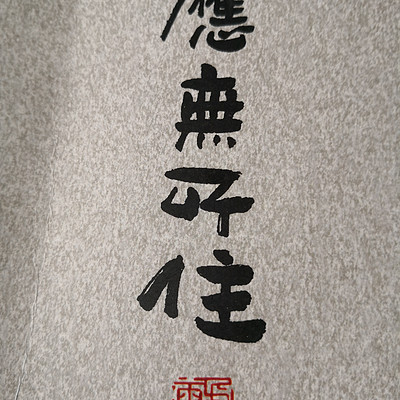 應無所住